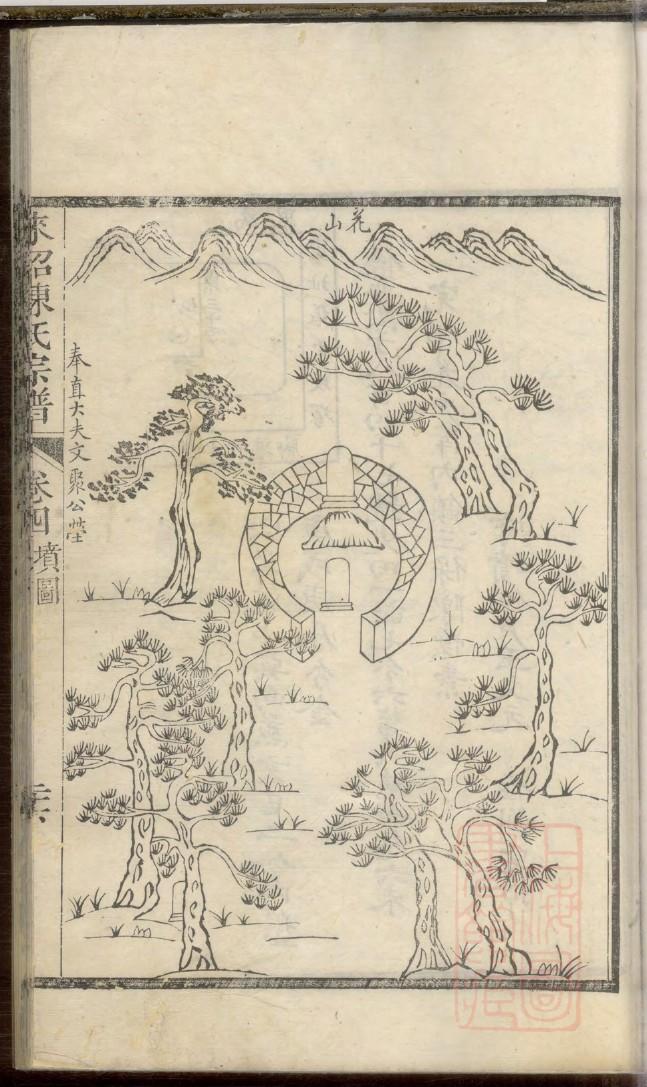 花山
奉直大夫文聚公塋
紹陳氏宗譜
卷四 墳圖